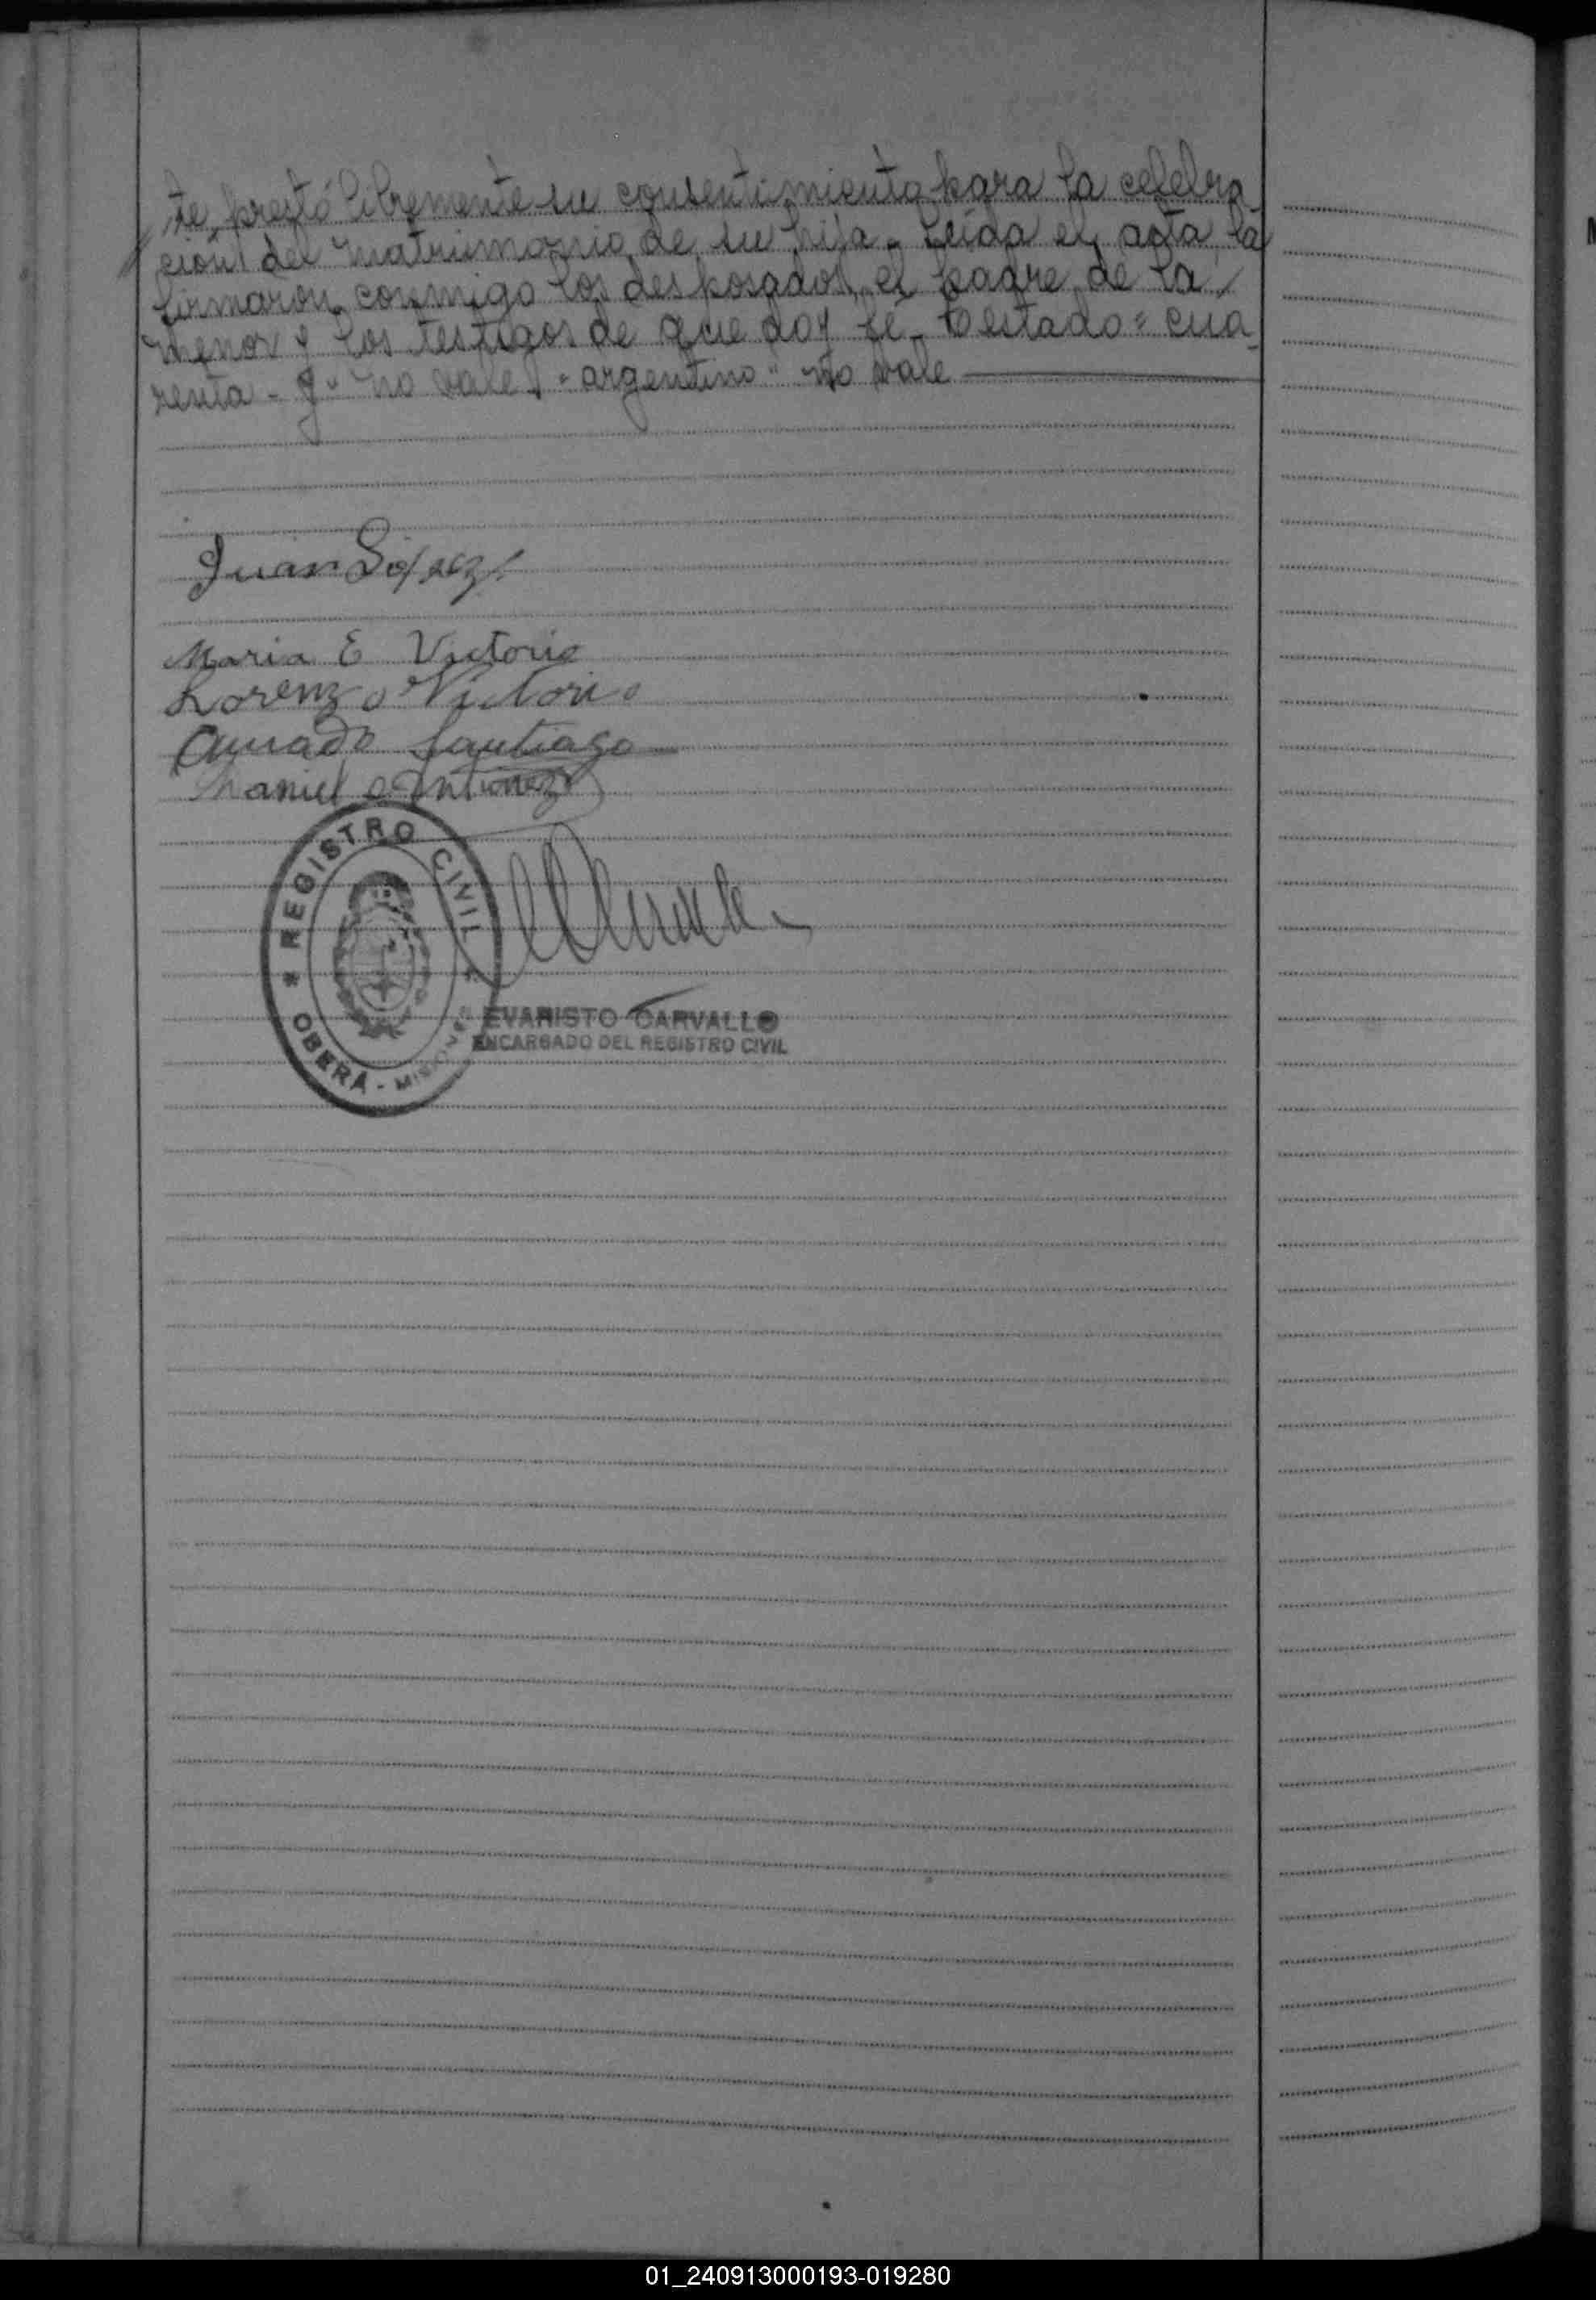 te, prestó libremente su consentimiento para la celebra
ción del matrimonio de su hija. Leida el acta la
firmaron conmigo los desposados, el padre de la
menor y los testigos de que doy fe. Testado = cua
renta - y - no vale - "argentino" no vale
Juan López
Maria E Victorio
Lorenzo Victorio
Amado Santiago
Daniel Antunez
REGISTRO CIVIL
OBERA - MISIONES
EVARISTO CARVALLO
ENCARGADO DEL REGISTRO CIVIL
01_240913000193-019280